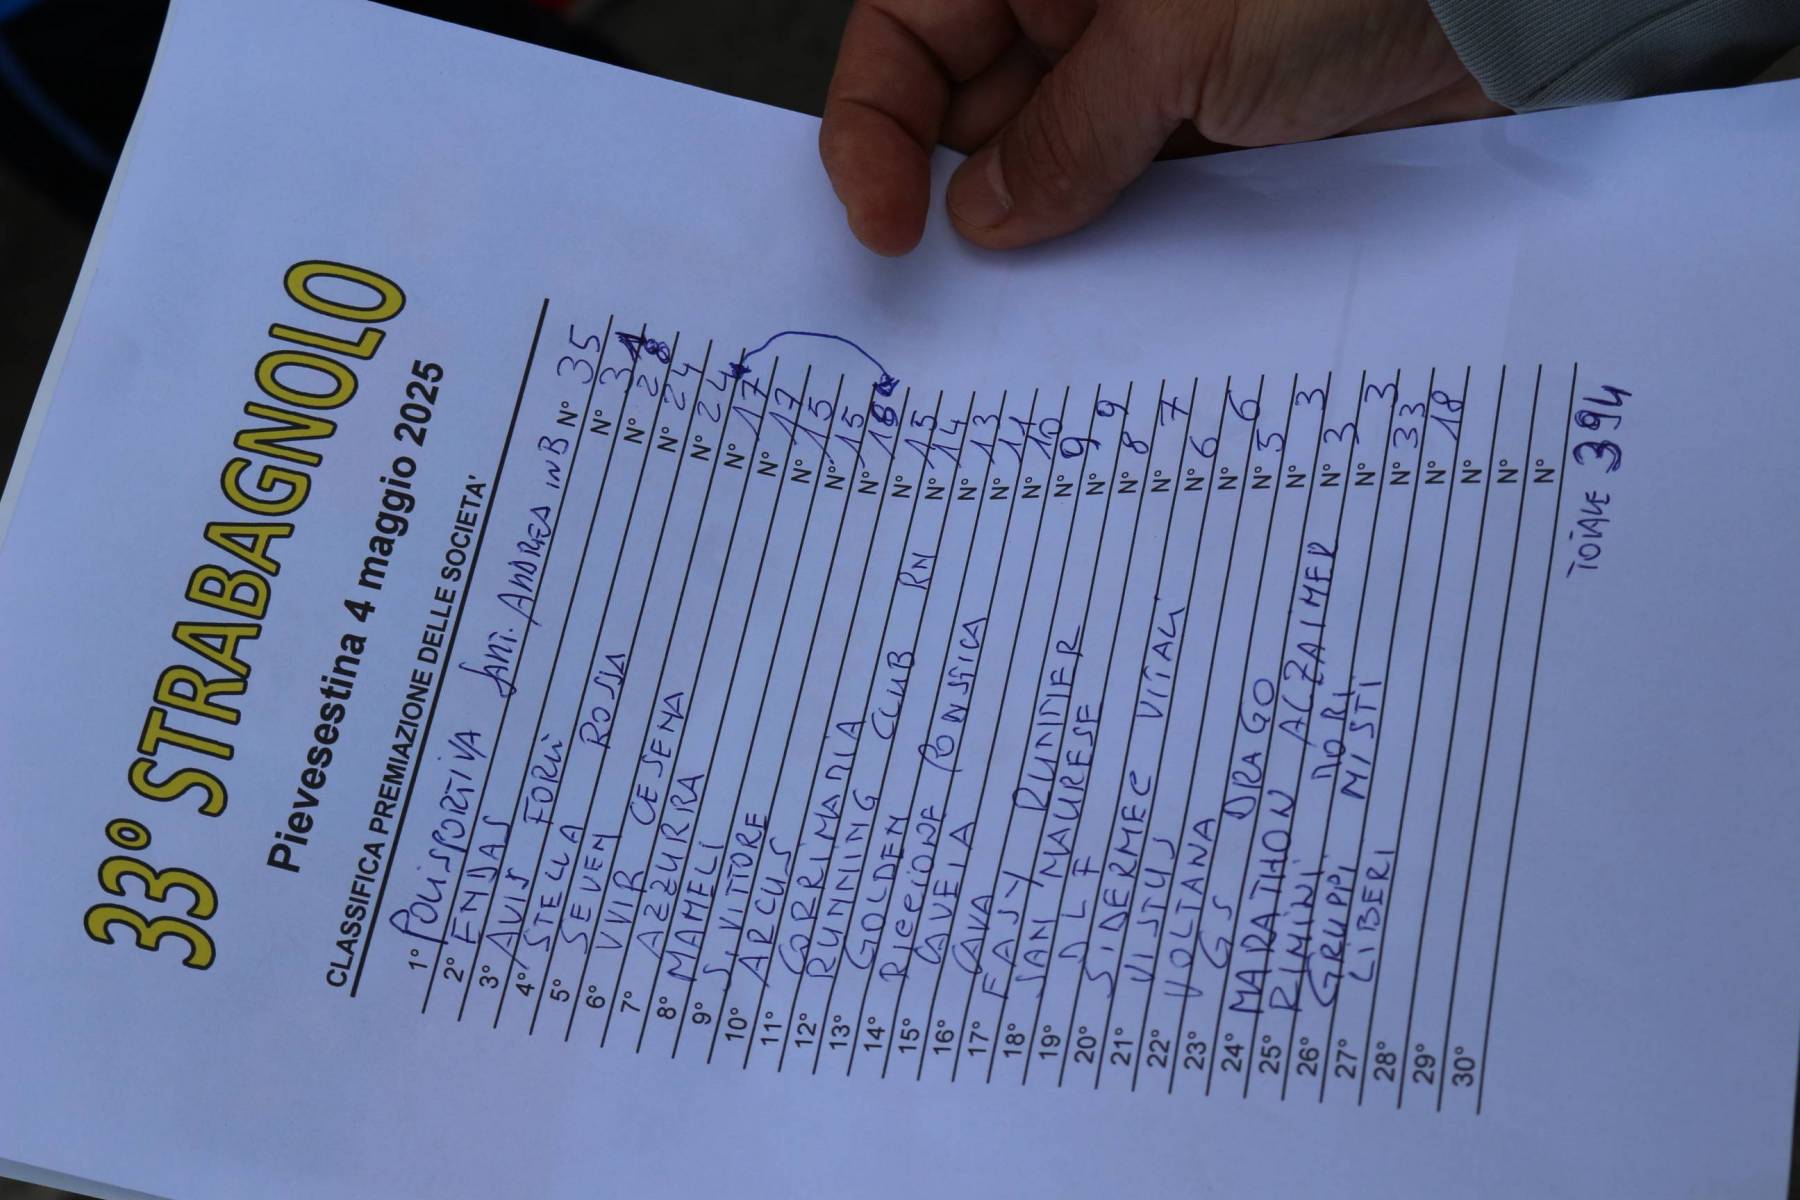 33° STRABAGNOLO
Pievesestina 4 maggio 2025
CLASSIFICA PREMIAZIONE DELLE SOCIETA'
1° POLISPORTIVA SANT. ANDREA IN B N° 35
2° ENDAS N° 31
3° AVIS FORLÌ N° 28
4° STELLA ROSSA N° 24
5° SEVEN N° 24
6° VIR CESENA N° 17
7° AZZURRA N° 17
8° MAMELI N° 15
9° S. VITTORE N° 15
10° ARCUS N°
11° CORRIMANIA N° 15
12° RUNNING N° 14
13° GOLDEN CLUB RN N° 13
14° RICCIONE N° 11
15° CAVEIA N° 10
16° CAVA N° 9
17° EASY RUNNER N° 9
18° SAN MAURESE N° 8
19° DLF N° 7
20° SIDERMEC VITALI N° 6
21° VISTUS N° 6
22° VOLTANA N° 5
23° GS DRAGO N° 3
24° MARATHON ALZAIMER N° 3
25° RIMINI N° 3
26° GRUPPI MISTI N° 33
27° LIBERI N° 18
28° N°
29° N°
30° N°
TOTALE 394